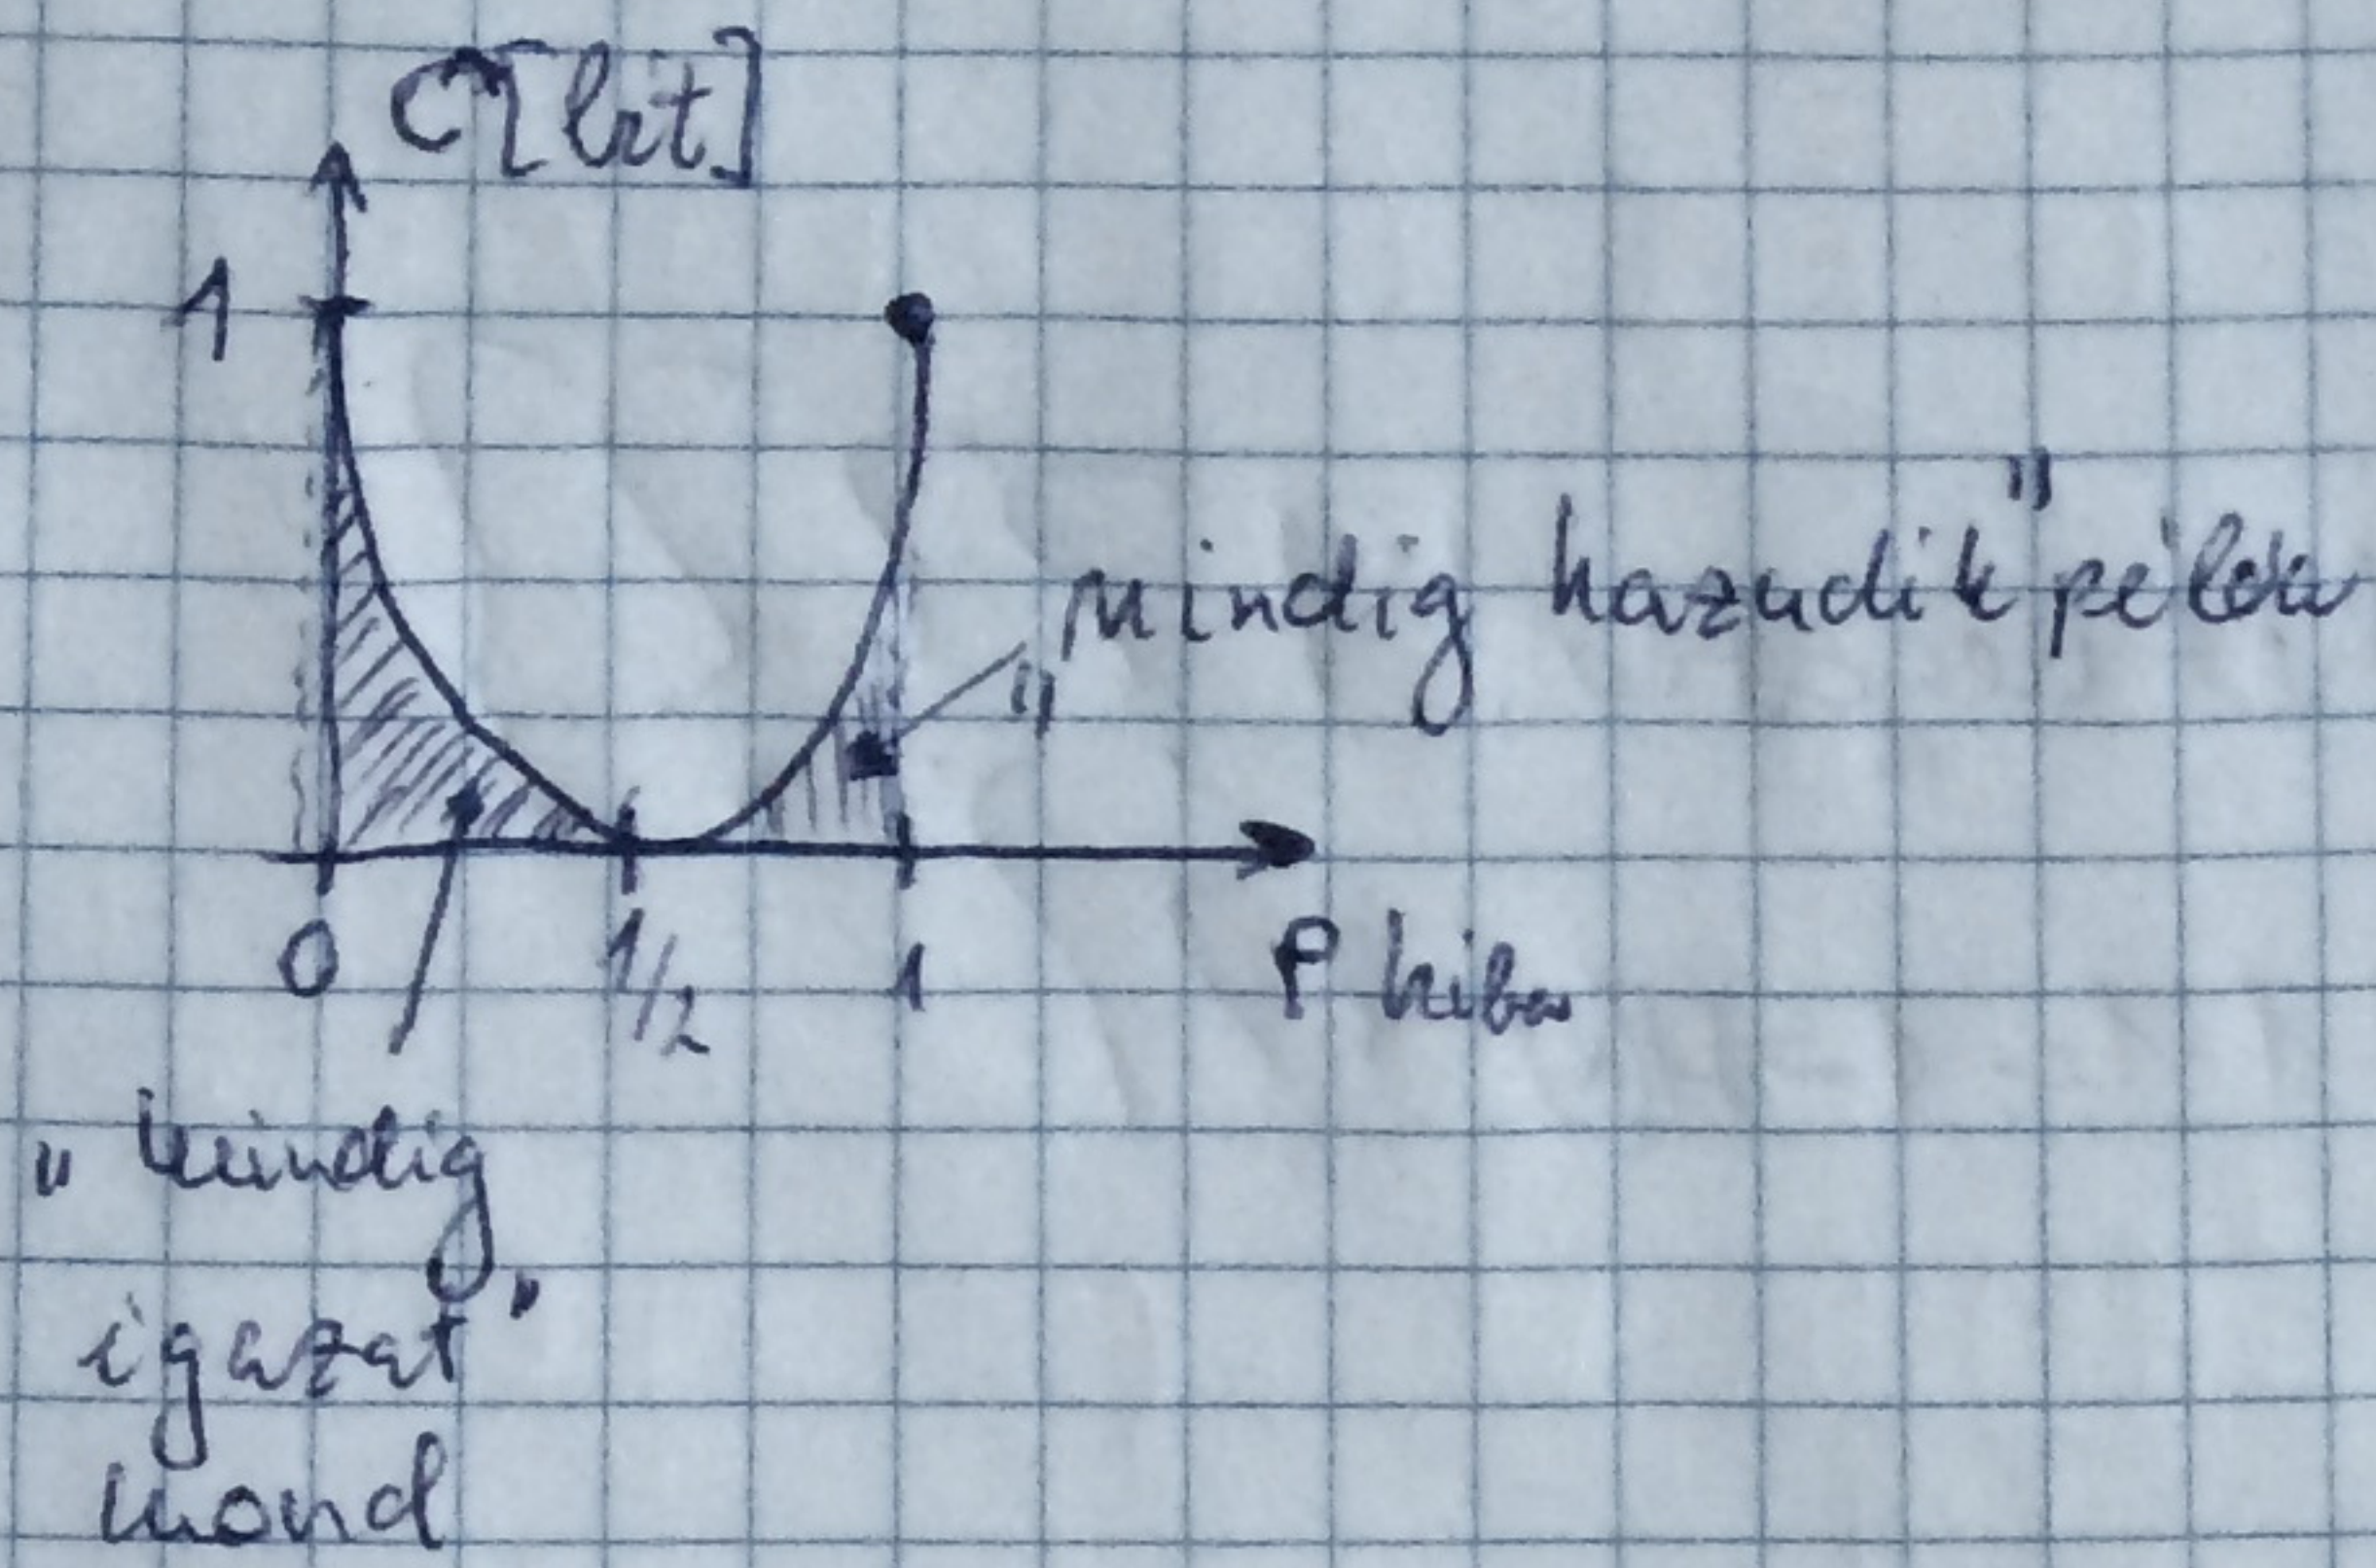 C[bit]
1
„mindig hazudik" példa
0 1/2 1 P hiba
„mindig
igazat"
mond